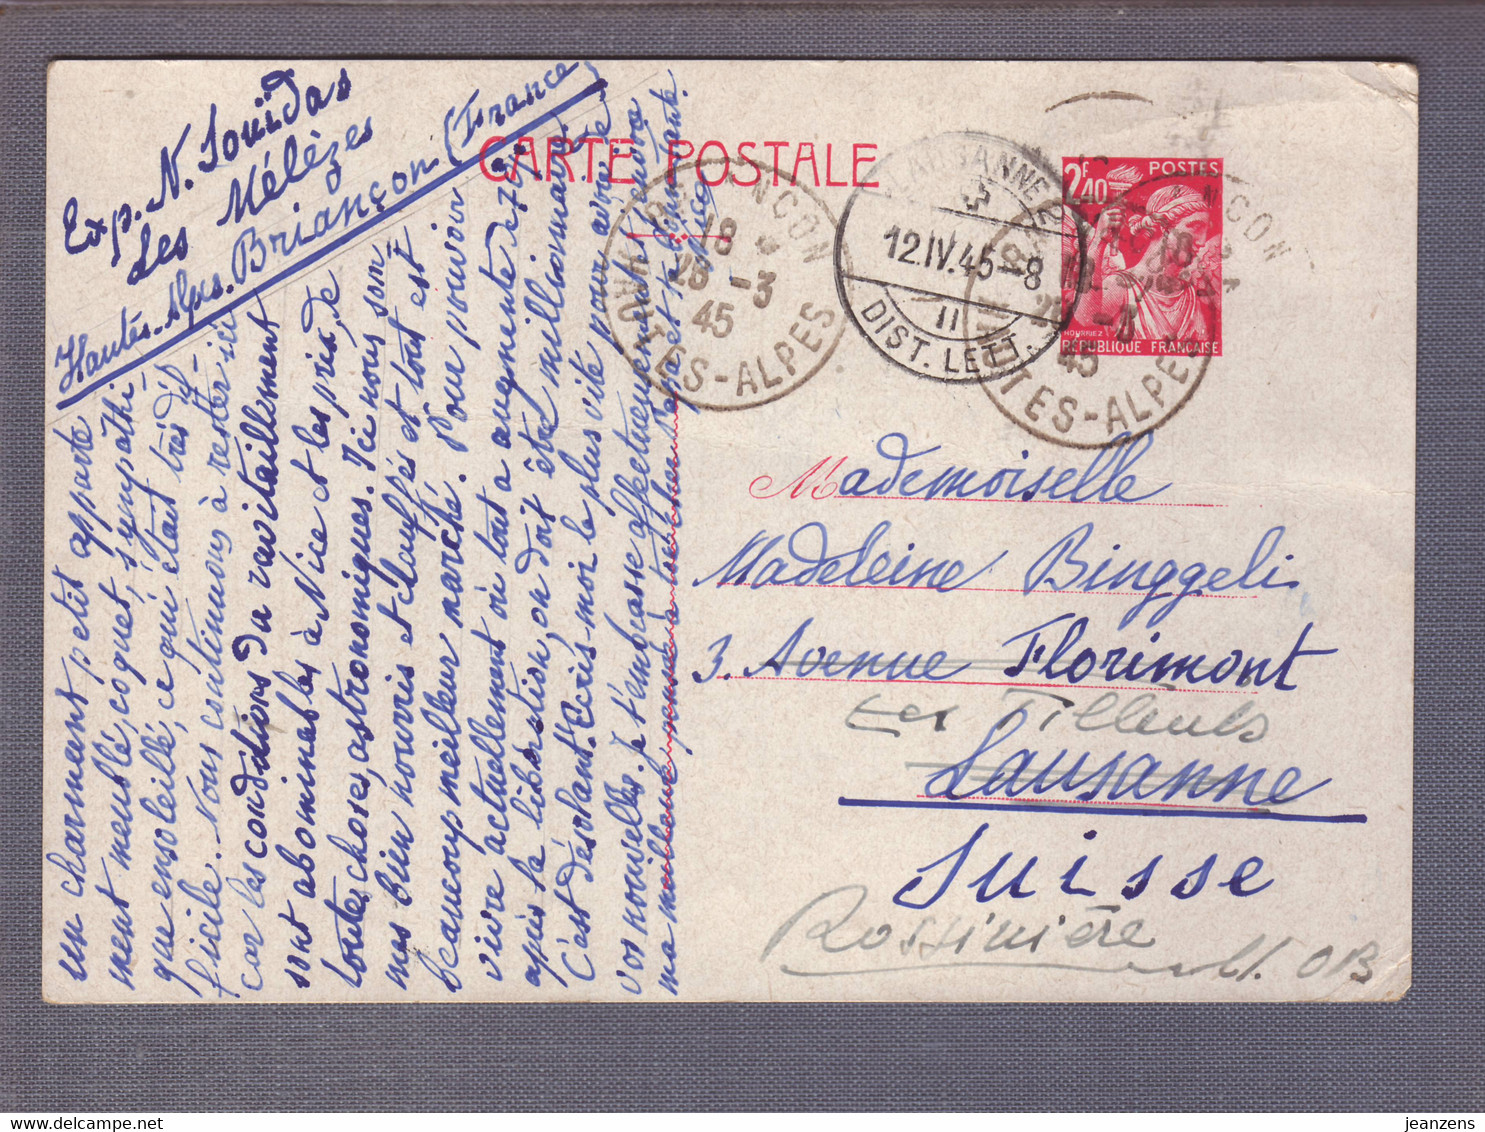 Exp. N. Souïdas
des Mélèzes
Hautes-Alpes. Briançon (France)
CARTE POSTALE
POSTES
2F40
RÉPUBLIQUE FRANÇAISE
BRIANÇON
18
28-3
45
HAUTES-ALPES
LAUSANNE 2
12.IV.45-8
II
DIST. LETT.
BRIANÇON
18
45
HAUTES-ALPES
Mademoiselle
Madeleine Binggeli
3. Avenue Florimont
Les Tilleuls
Lausanne
Suisse
Rossinière
un charmant petit apparte
ment meublé, coquet, sympathi-
que ensoleillé, ce qui était très dif-
ficile. Nous continuons à rester ici
car les conditions du ravitaillement
sont abominables à Nice et les prix, de
toutes choses, astronomiques. Ici nous som-
mes bien nourris et chauffés et tout est
beaucoup meilleur marché. Pour pouvoir
vivre actuellement où tout a augmenté de
après la libération, on doit être millionnaire
C'est désolant. Ecris-moi le plus vite pour avoir de
vos nouvelles. Je t'embrasse affectueusement
ma meilleure pensée à ton cher
jeanzens